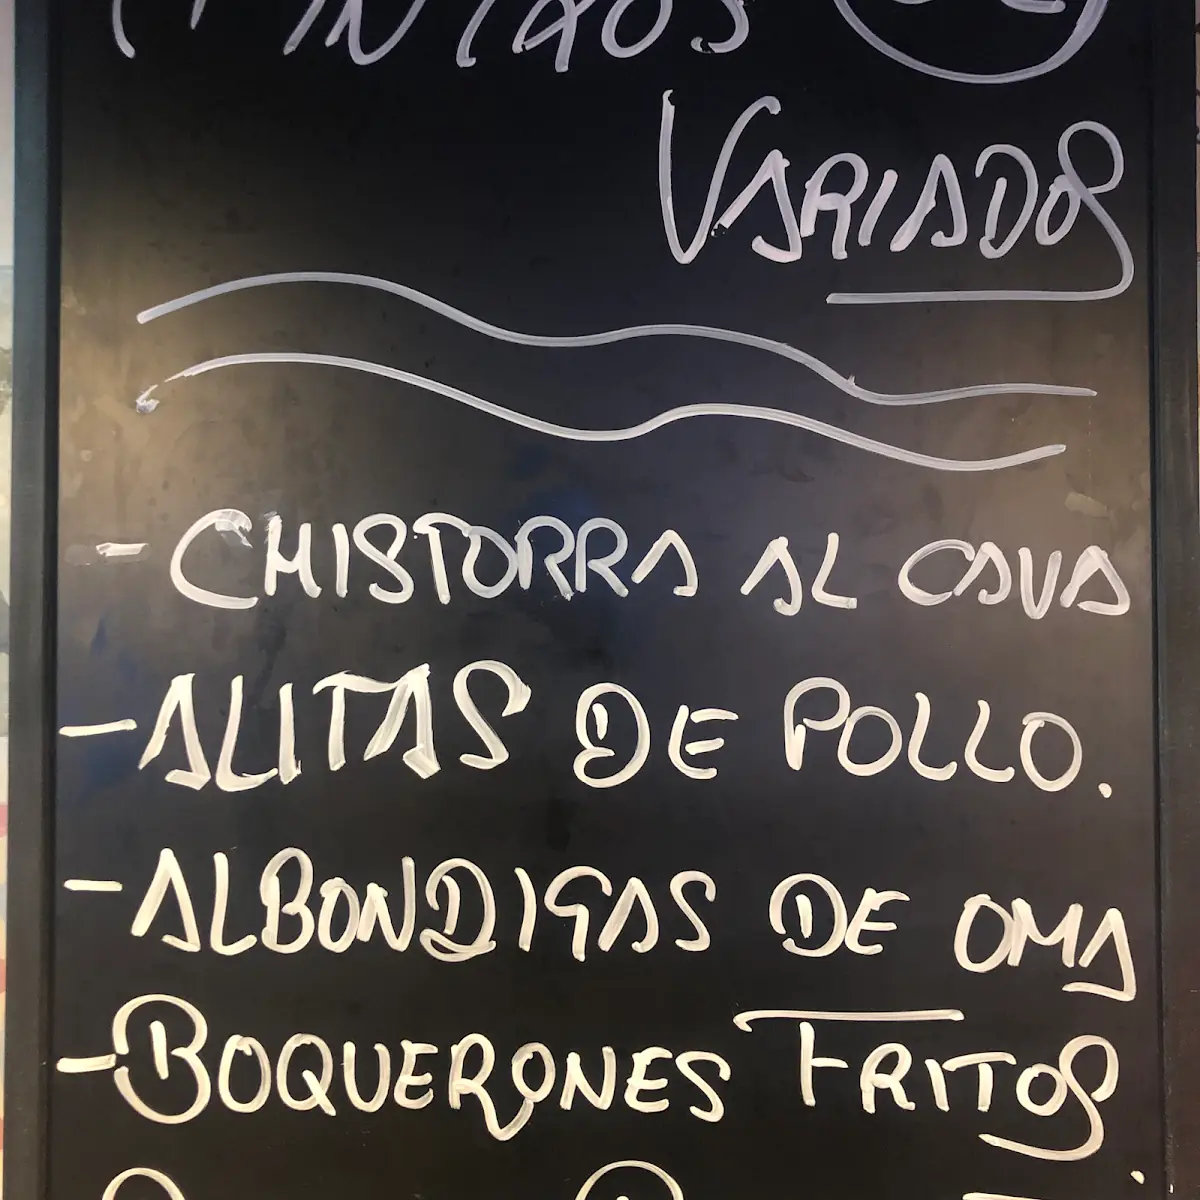 PINTXOS
VARIADOS
- CHISTORRA AL CAVA
- ALITAS DE POLLO.
- ALBONDIGAS DE OMA
- BOQUERONES FRITOS